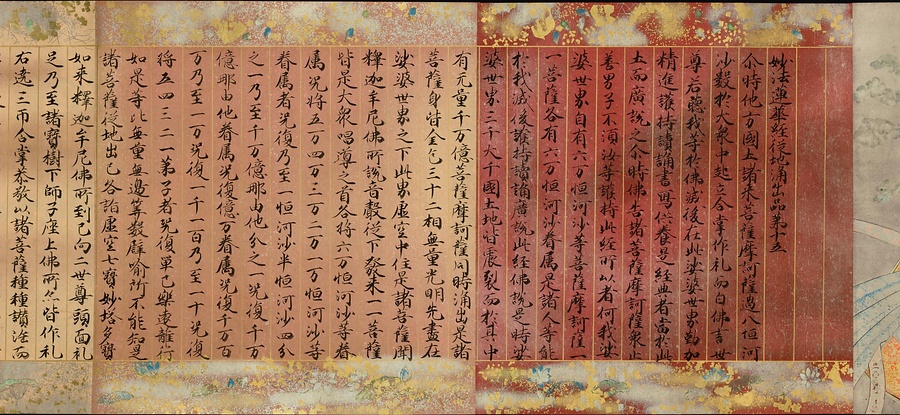 妙法蓮華經從地涌出品第十五
尒時他方國土諸來菩薩摩訶薩過八恒河
沙數於大衆中起立合掌作礼而白佛言世
尊若聽我等於佛滅後在此娑婆世界勤加
精進護持讀誦書寫供養是經典者當於此
土而廣說之尒時佛告諸菩薩摩訶薩衆止
善男子不須汝等護持此經所以者何我娑
婆世界自有六万恒河沙等菩薩摩訶薩一
一菩薩各有六万恒河沙眷属是諸人等能
於我滅後護持讀誦廣說此經佛說是時娑
婆世界三千大千國土地皆震裂而於其中
有无量千万億菩薩摩訶薩同時涌出是諸
菩薩身皆金色三十二相無量光明先盡在
娑婆世界之下此界虚空中住是諸菩薩聞
釋迦牟尼佛所說音聲從下發來一一菩薩
皆是大衆唱導之首各將六万恒河沙等眷
属況將五万四万三万二万一万恒河沙等
眷属者況復乃至一恒河沙半恒河沙四分
之一乃至千万億那由他分之一況復千万
億那由他眷属況復億万眷属況復千万百
万乃至一万況復一千一百乃至一十況復
將五四三二一弟子者況復單己樂遠離行
如是等比無量無邊筭數譬喻所不能知是
諸菩薩從地出已各詣虚空七寶妙塔多寶
如來釋迦牟尼佛所到已向二世尊頭面礼
足乃至諸寶樹下師子座上佛所亦皆作礼
右遶三帀合掌恭敬以諸菩薩種種讚法而